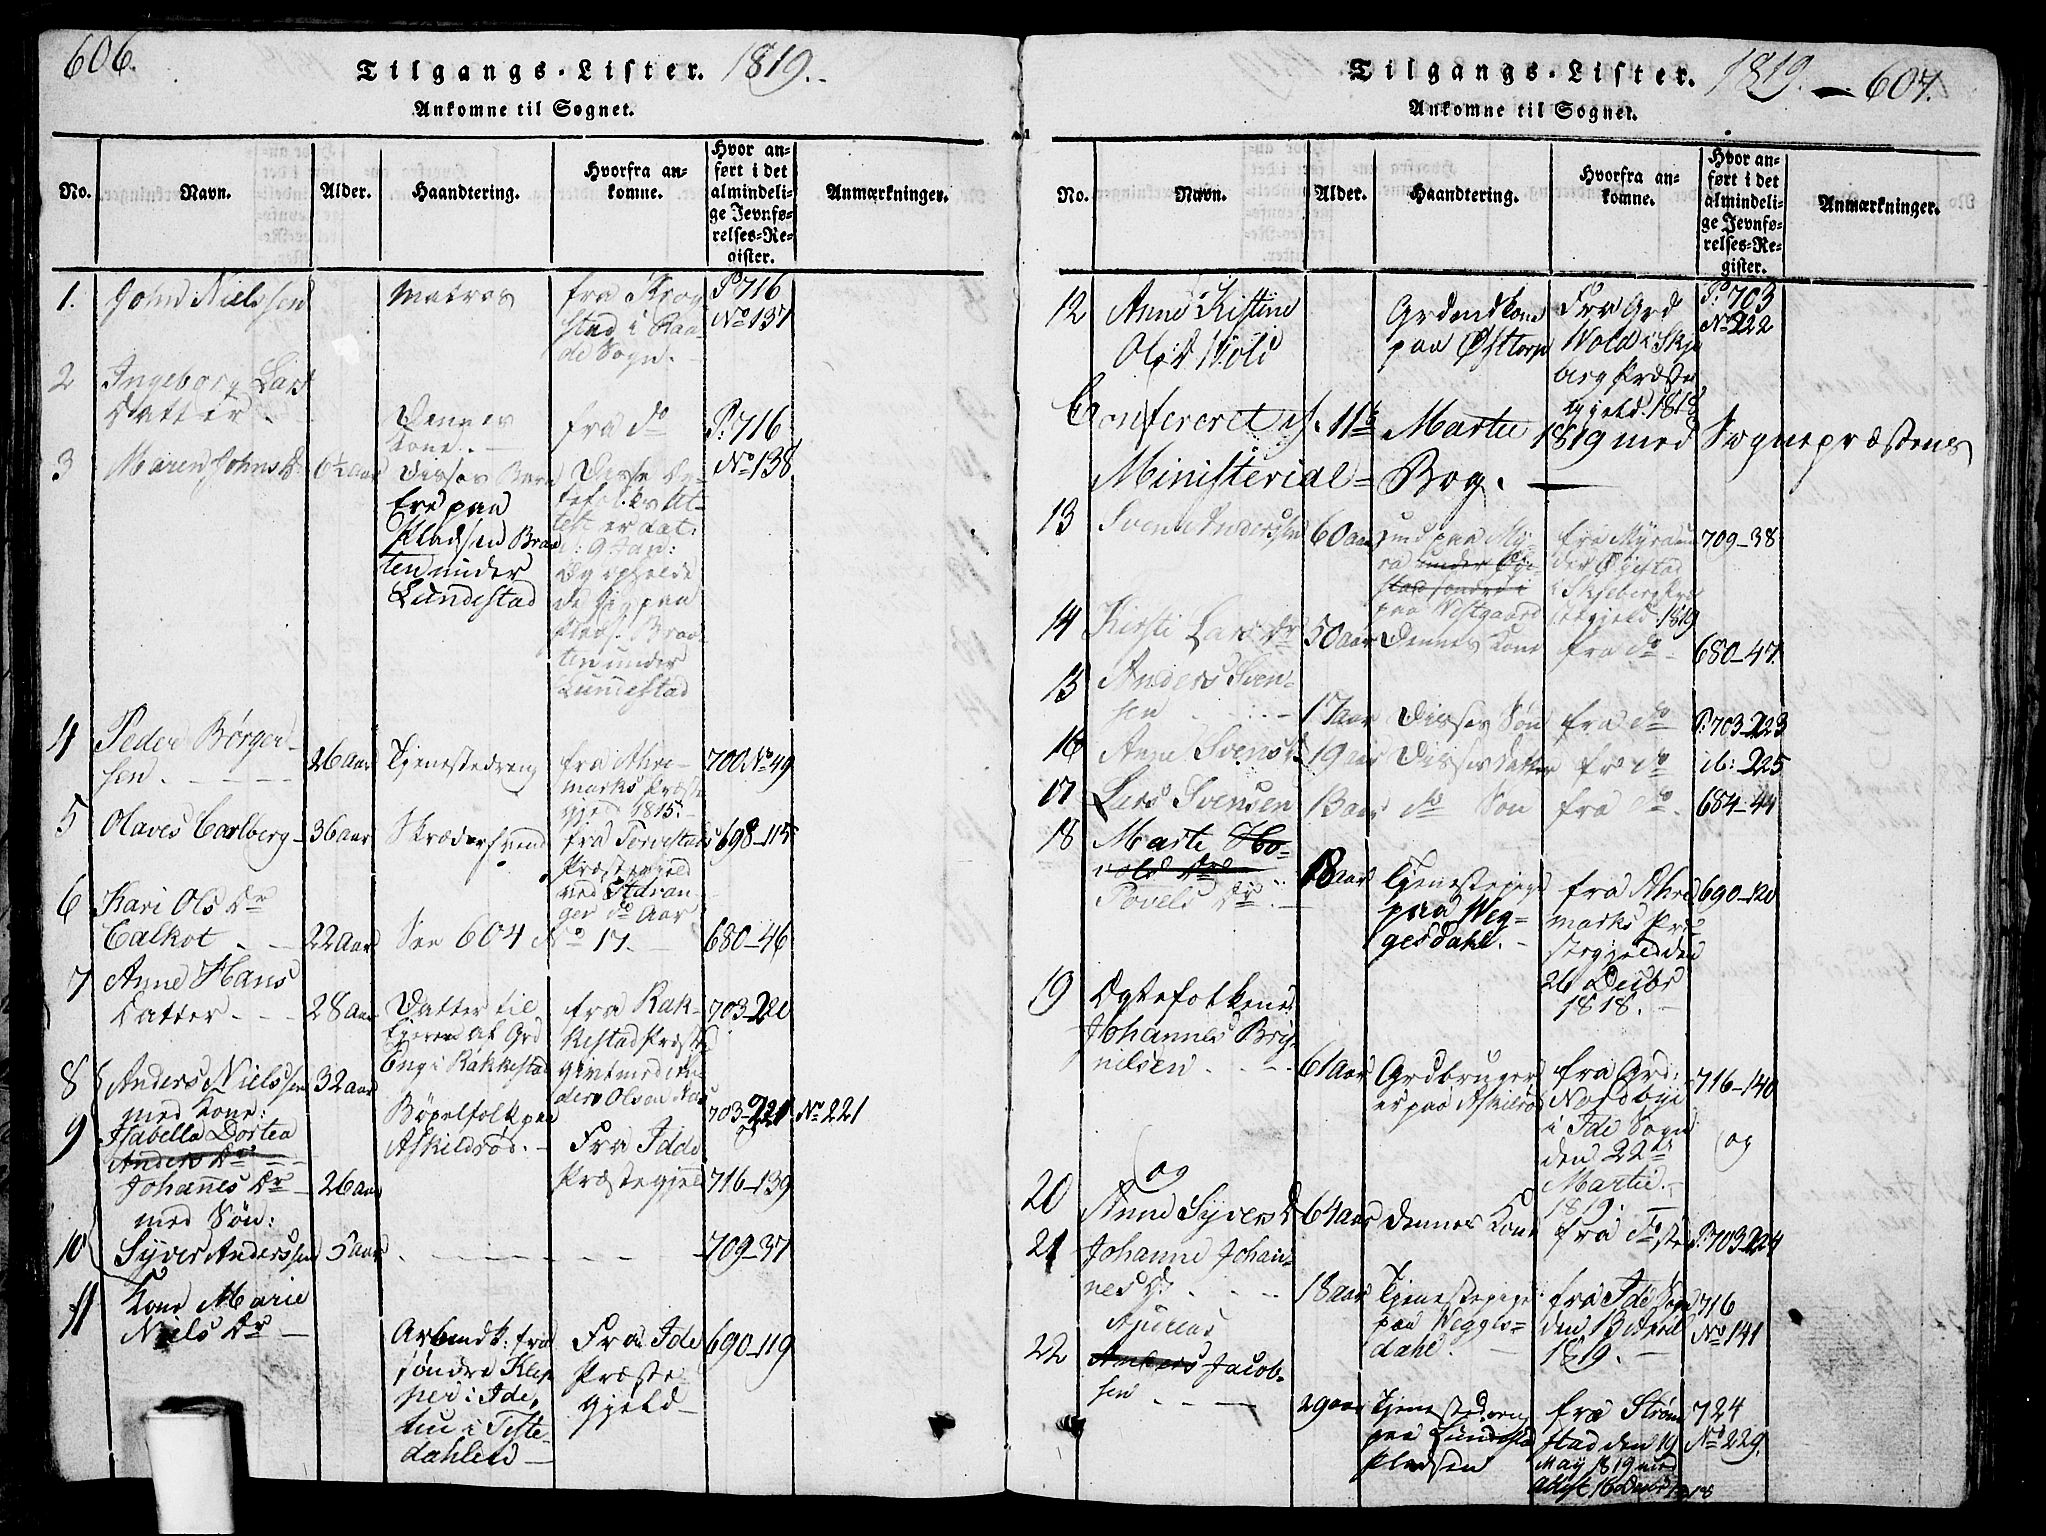 606.
Tilgangs-Lister. 1819.
Ankomne til Sognet.
No.
Navn.
Alder.
Haandtering.
Hvorfra an-
komne.
Hvor an-
ført i det
almindeli-
ge Jevnfø-
relses-Re-
gister.
Anmærkninger.
1.
John Nielssen
Matros
fra Krog
stad i Raa-
de Sogn.
P: 716
No 137
2
Ingeborg Lars
Datter.
Dennes
Kone.
fra do
P: 716
No 138
3
Maren Johns D
6½ aar
Disses Barn
Ere paa
Pladsen Braa
ten under
Lundestad
Disse
At-
test er dat.
d: 9 Jan:
de sig paa
Plads. Braa-
ten under
Lundestad
4
Peder Børger-
sen.
26 aar
Tjenestedreng
fra Ahre-
marks Præste
gjeld 1815.
700. No 49
5
Olaves Carlberg
36 aar
Skrædersvend
fra
Præstegjeld
ved Stavan-
ger do Aar
698-115
6
Kari Ols Dr
Calkot
22 aar
See 604 No 17.
680-46
7
Anne Hans
Datter
28 aar
Datter til
af Grd
Eng i Rakkestad
fra Rak-
kestad Præste
givt med
Olsen
703-220
8
Anders Nielssen
med Kone:
32 aar
Bøxelfolk paa
Askildrød.
703-221 No 221
9
Isabella Dortea
Anders Dr
Johanes Dr
med Søn:
26 aar
Fra Idde
Præstegjeld
716-139
10
Syver Anderssen
5 aar
709-37
11
Kone Marie
Niels Dr
Arbeidsk: fra
søndre Klep
per i Ide,
nu i Tiste-
dahlen
Fra Ide
Præste
gjeld
690-119
Tilgangs-Lister. 1819. 607.
Ankomne til Sognet.
No.
Navn.
Alder.
Haandtering.
Hvorfra an-
komne.
Hvor an-
ført i det
almindeli-
ge Jevnfø-
relses-Re-
gister.
Anmærkninger.
12
Anne Kistine
Ols D Wold
Grdmdkone
paa Østtorp
Fra Grd
Wold i Skje
berg Præste
gjeld. 1818
P: 703
No 222
Confereret d. 11te Martii 1819 med Sognepræstens
Ministerial-Bog.
13
Svend Anderssen
60 aar
paa My-
ra under Øge-
stad søndre i
paa Vestgaard
fra Myra un
der Øgestad
i Skjeberg Præ
stegjeld 1819
709-38
14
Kirsti Lars Dr
50 aar
Dennes Kone
fra do
680-47
15
Anders Sven-
sen
17 aar
Disses Søn
fra do
P: 703-223
16
Anne Svens D
19 aar
Disses Datter
fr do
ib: 225
17
Lars Svensen
13 aar
do Søn
fra do
684-44
18
Marte Ho-
vold Dr
Povels Dr
18 aar
Tjenestepige
paa Weg-
gesdahl.
fra Ahre
marks Præ
stegjeld den
26 Decbr
1818.
690-120
19
Egtefolkene
Johannes Bry-
nilsen
61 aar
Grdbruger
er paa Askilrød
fra Grd:
Nordbye
i Ide Sogn
den 22de
Martii
1819.
716-140
og
og
20
Anne Syvers D
64 aar
Dennes Kone
fra do Sted
P. 703-224
21
Johanne Johan-
nes D.
18 aar
Tjenestepige
paa Wegges-
dahl.
fra Ide Sogn
den 13 April
1819.
716
No 141
22
Andreas
Anders Jacob-
sen
29 aar
Tjenestedreng
paa Lundestad
Pladsen
fra Strøm
stad den 19
May 1819 med
Attest 16 Decbr 1818
724
No 229.